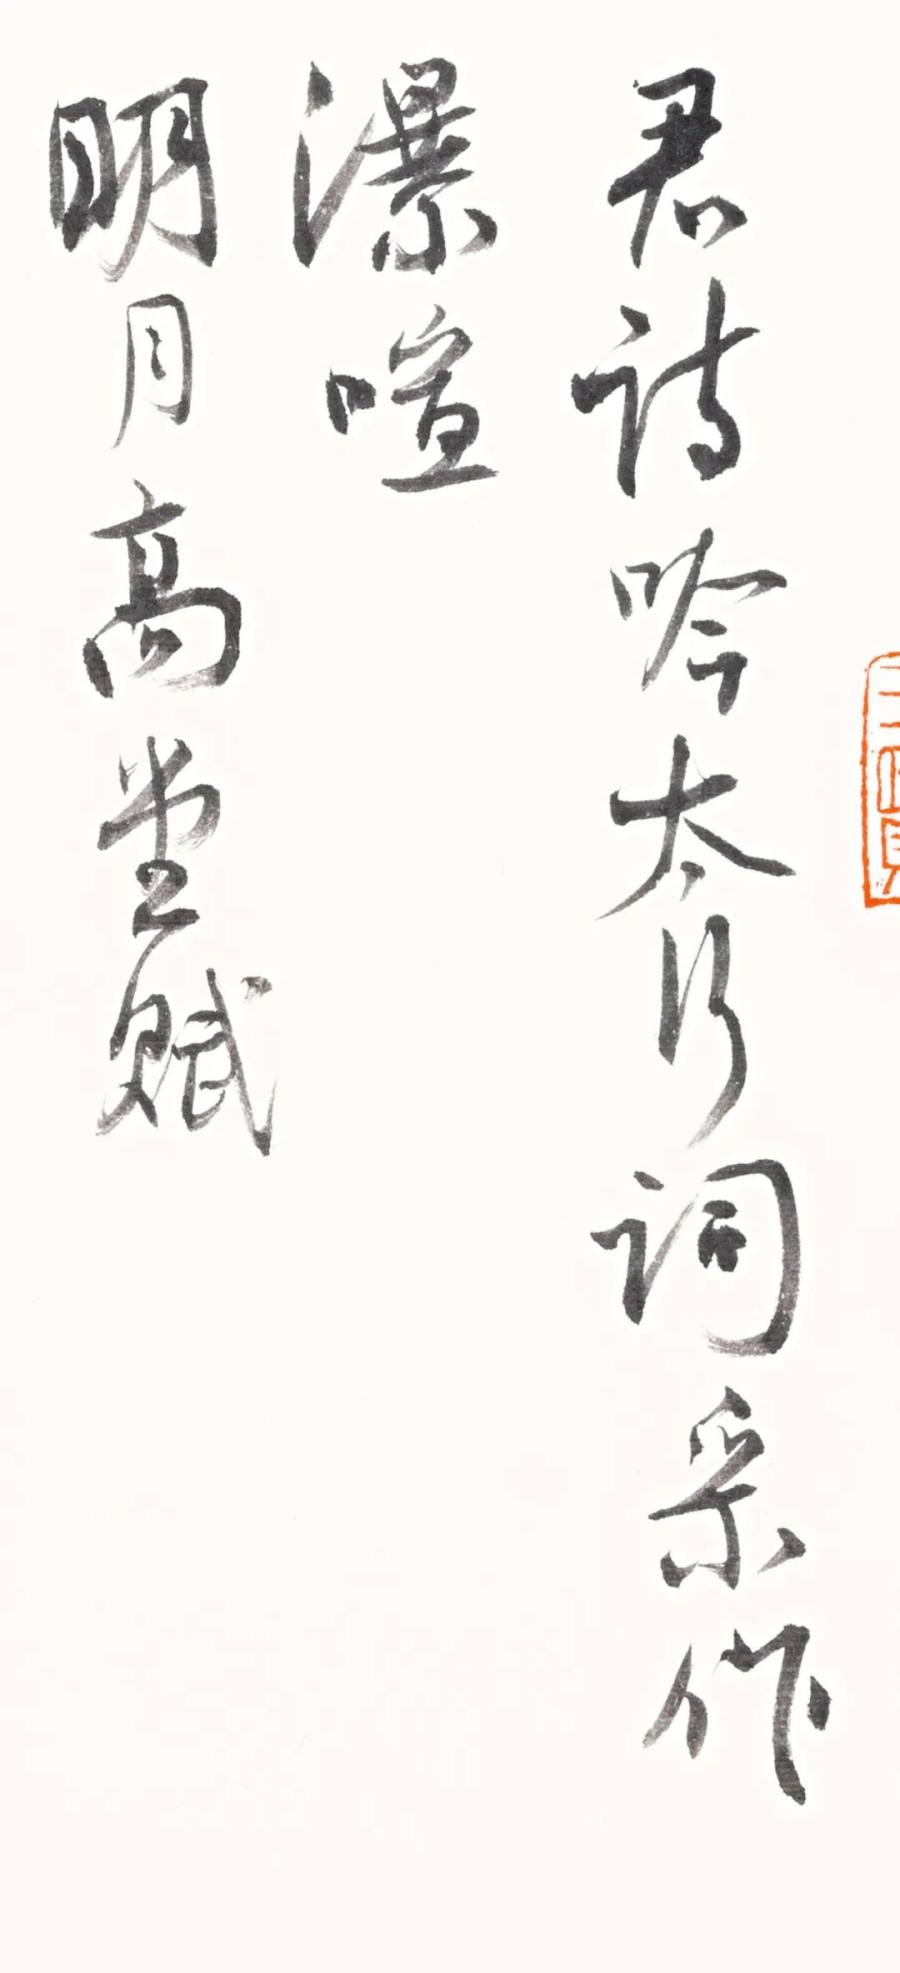 君诗吟太行词采作
瀑喧
明月高堂赋